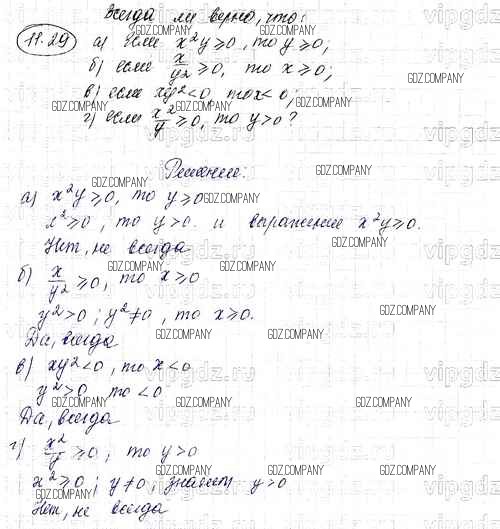 Всегда ли верно, что:
11.29 а) если x²y ≥ 0, то y ≥ 0;
б) если x/y² ≥ 0, то x ≥ 0;
в) если xy² < 0, то x < 0;
г) если x²/y ≥ 0, то y > 0?
Решение:
а) x²y ≥ 0, то y ≥ 0
x² ≥ 0, то y > 0. и выражение x²y ≥ 0.
Нет, не всегда
б) x/y² ≥ 0, то x ≥ 0
y² > 0; y² ≠ 0, то x ≥ 0.
Да, всегда
в) xy² < 0, то x < 0
y² > 0 то < 0
Да, всегда
г) x²/y ≥ 0, то y > 0
x² ≥ 0; y ≠ 0, значит y > 0
Нет, не всегда
GDZ.COMPANY
vipgdz.ru